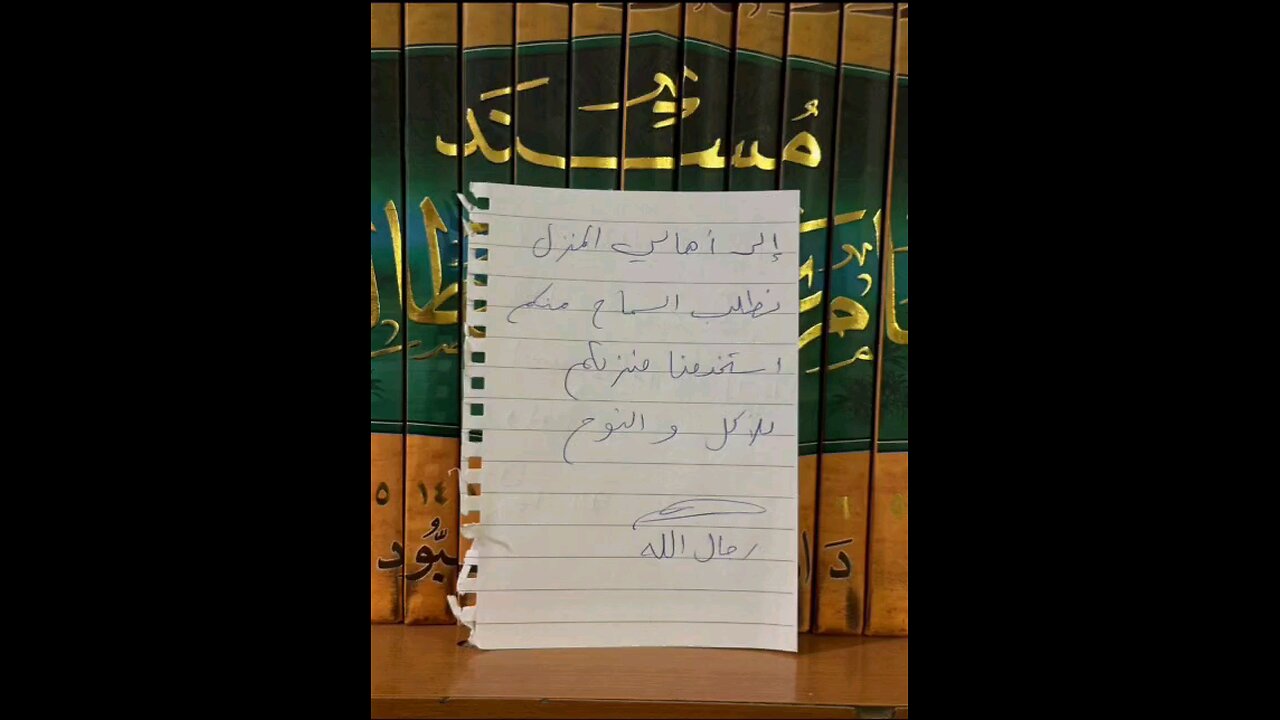 مُسْنَد
إلى أهالي المنزل
نطلب السماح منكم
استخدمنا منزلكم
للأكل و النوم
رجال الله
٥ ١٤